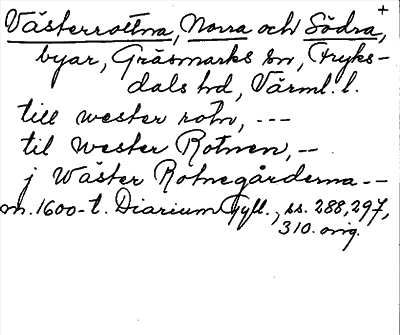 +
Västerrottna, Norra och Södra,
byar, Gräsmarks sn, Fryks-
dals hd, Värml. l.
till wester rotn, ---
til wester Rotnen, --
j Wäster Rotnegårderna --
m. 1600-t. Diarium Gyll., ss. 288, 297,
310. orig.